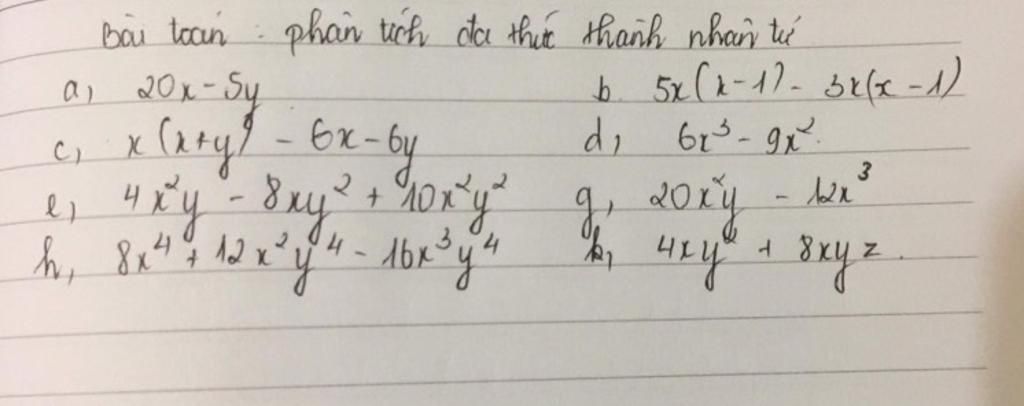 Bài toán : phân tích đa thức thành nhân tử
a, 20x - 5y b. 5x(x-1) - 3x(x-1)
c, x(x+y) - 6x - 6y d, 6x³ - 9x².
e, 4x²y - 8xy² + 10x²y² g, 20x²y - 12x³
h, 8x⁴ + 12x²y⁴ - 16x³y⁴ k, 4xy² + 8xyz.